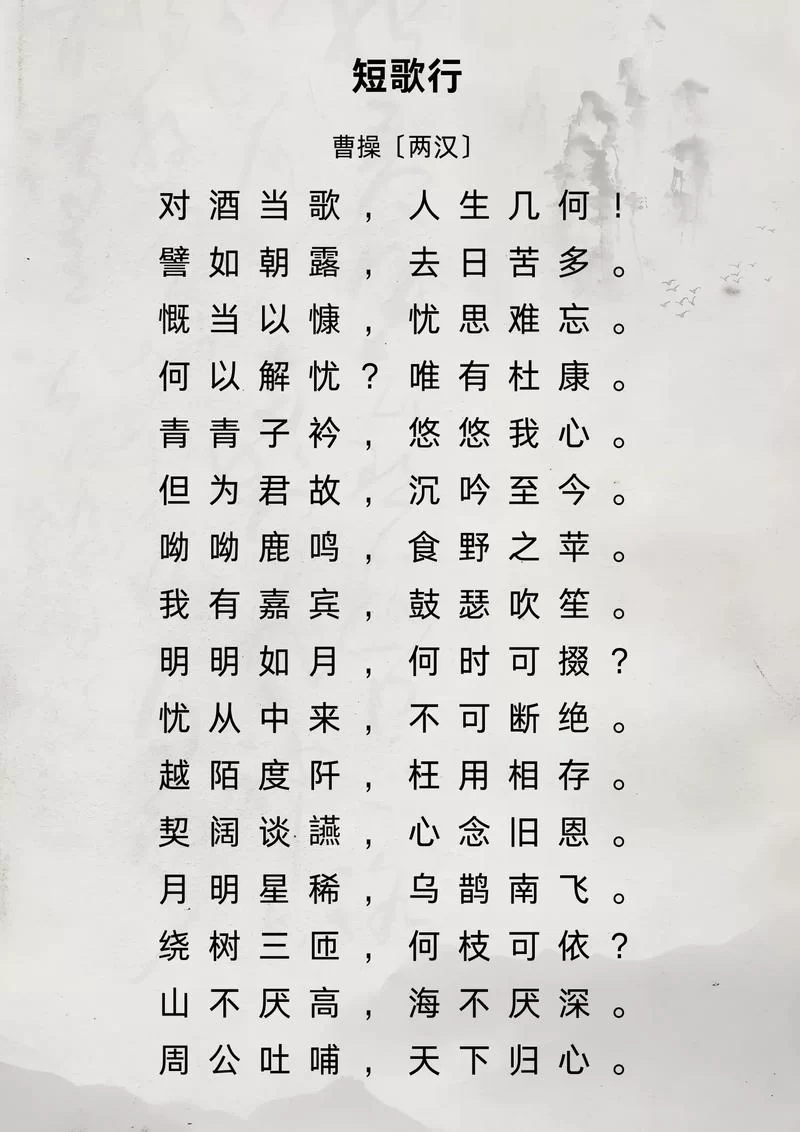 短歌行
曹操〔两汉〕
对酒当歌，人生几何！
譬如朝露，去日苦多。
慨当以慷，忧思难忘。
何以解忧？唯有杜康。
青青子衿，悠悠我心。
但为君故，沉吟至今。
呦呦鹿鸣，食野之苹。
我有嘉宾，鼓瑟吹笙。
明明如月，何时可掇？
忧从中来，不可断绝。
越陌度阡，枉用相存。
契阔谈讌，心念旧恩。
月明星稀，乌鹊南飞。
绕树三匝，何枝可依？
山不厌高，海不厌深。
周公吐哺，天下归心。